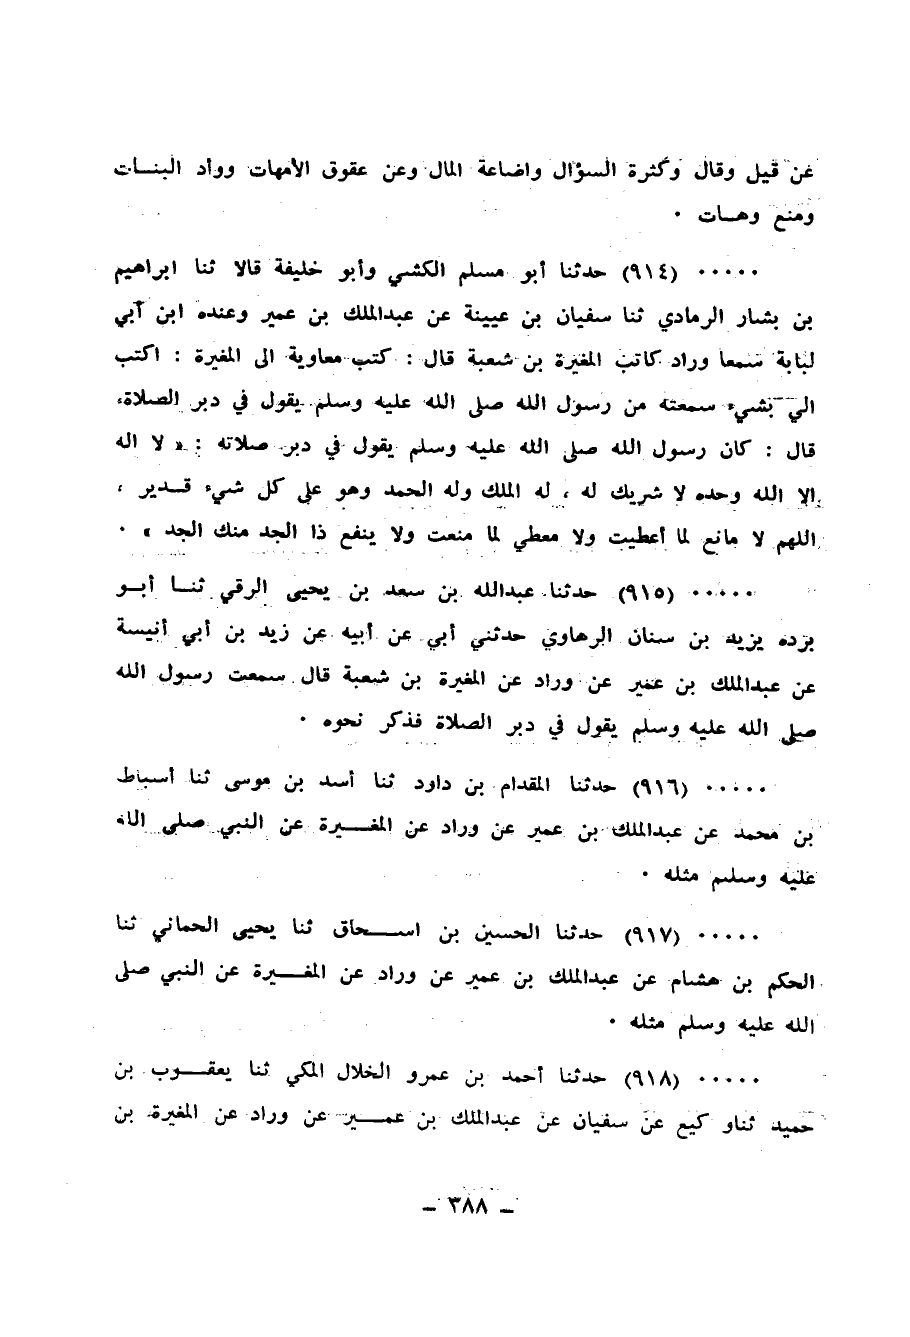 عن قيل وقال وكثرة السؤال واضاعة المال وعن عقوق الأمهات ووأد البنــات
ومنع وهــات ٠
٠٠٠٠٠ (٩١٤) حدثنا أبو مسلم الكشي وأبو خليفة قالا ثنا ابراهيم
بن بشار الرمادي ثنا سفيان بن عيينة عن عبدالملك بن عمير وعنده ابن أبي
لبابة سمعا وراد كاتب المغيرة بن شعبة قال : كتب معاوية الى المغيرة : اكتب
الي بشيء سمعته من رسول الله صلى الله عليه وسلم يقول في دبر الصلاة،
قال : كان رسول الله صلى الله عليه وسلم يقول في دبر صلاته : « لا اله
الا الله وحده لا شريك له ، له الملك وله الحمد وهو على كل شيء قــدير ،
اللهم لا مانع لما أعطيت ولا معطي لما منعت ولا ينفع ذا الجد منك الجد » ٠
٠٠٠٠٠ (٩١٥) حدثنا عبدالله بن سعد بن يحيى الرقي ثنــا أبــو
برده يزيد بن سنان الرهاوي حدثني أبي عن أبيه عن زيد بن أبي أنيسة
عن عبدالملك بن عمير عن وراد عن المغيرة بن شعبة قال سمعت رسول الله
صلى الله عليه وسلم يقول في دبر الصلاة فذكر نحوه ٠
٠٠٠٠٠ (٩١٦) حدثنا المقدام بن داود ثنا أسد بن موسى ثنا أسباط
بن محمد عن عبدالملك بن عمير عن وراد عن المغــيرة عن النبي صلى الله
عليه وسلم مثله ٠
٠٠٠٠٠ (٩١٧) حدثنا الحسين بن اســحاق ثنا يحيى الحماني ثنا
الحكم بن هشام عن عبدالملك بن عمير عن وراد عن المغــيرة عن النبي صلى
الله عليه وسلم مثله ٠
٠٠٠٠٠ (٩١٨) حدثنا أحمد بن عمرو الخلال المكي ثنا يعقــوب بن
حميد ثناو كيع عن سفيان عن عبدالملك بن عمــير عن وراد عن المغيرة بن
ــ ٣٨٨ ــ